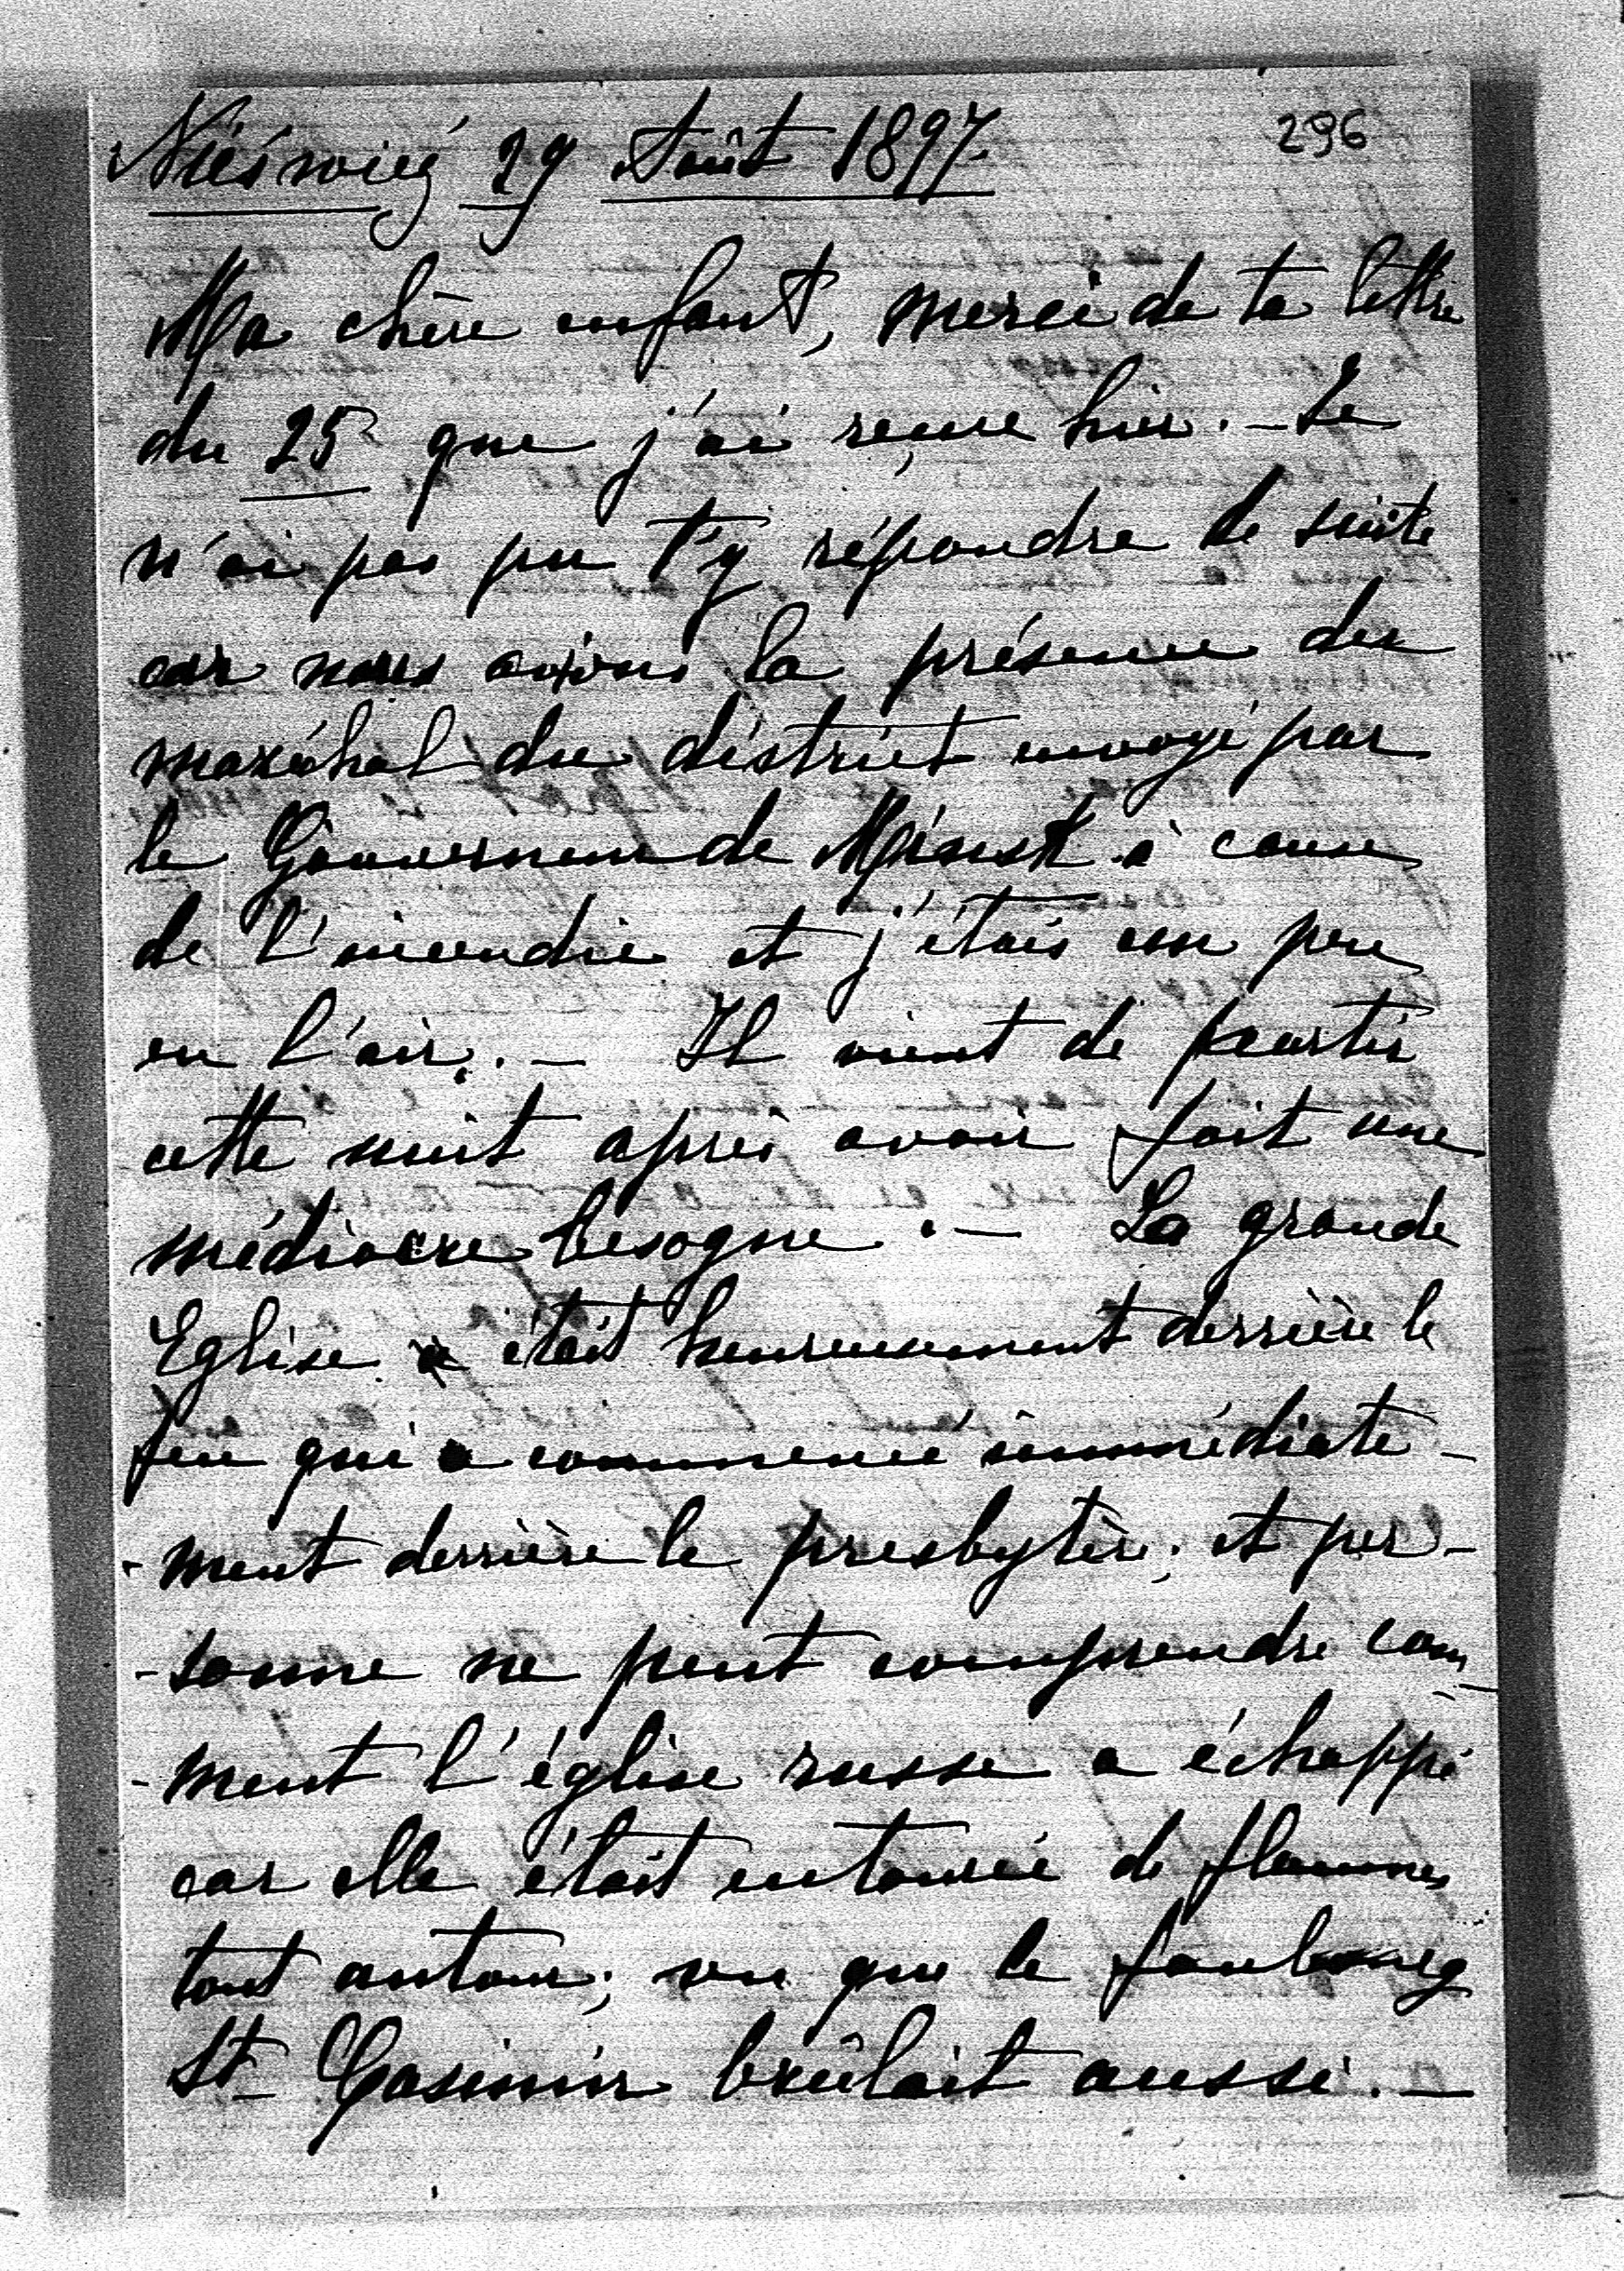 Nieśwież 29 Août 1897.
296
Ma chère enfant, merci de ta lettre
du 25 que j'ai reçue hier. - Je
n'ai pas pu t'y répondre de suite
car nous avions la présence du
maréchal du district envoyé par
le Gouverneur de Minsk à cause
de l'incendie et j'étais un peu
en l'air. - Il vient de partir
cette nuit après avoir fait une
médiocre besogne. - La grande
Eglise était heureusement derrière le
feu qui a commencé immédiate-
-ment derrière le presbytère; et per-
-sonne ne peut comprendre com-
-ment l'église russe a échappé
car elle était entourée de flammes
tout autour; vu que le faubourg
St Casimir brûlait aussi. -